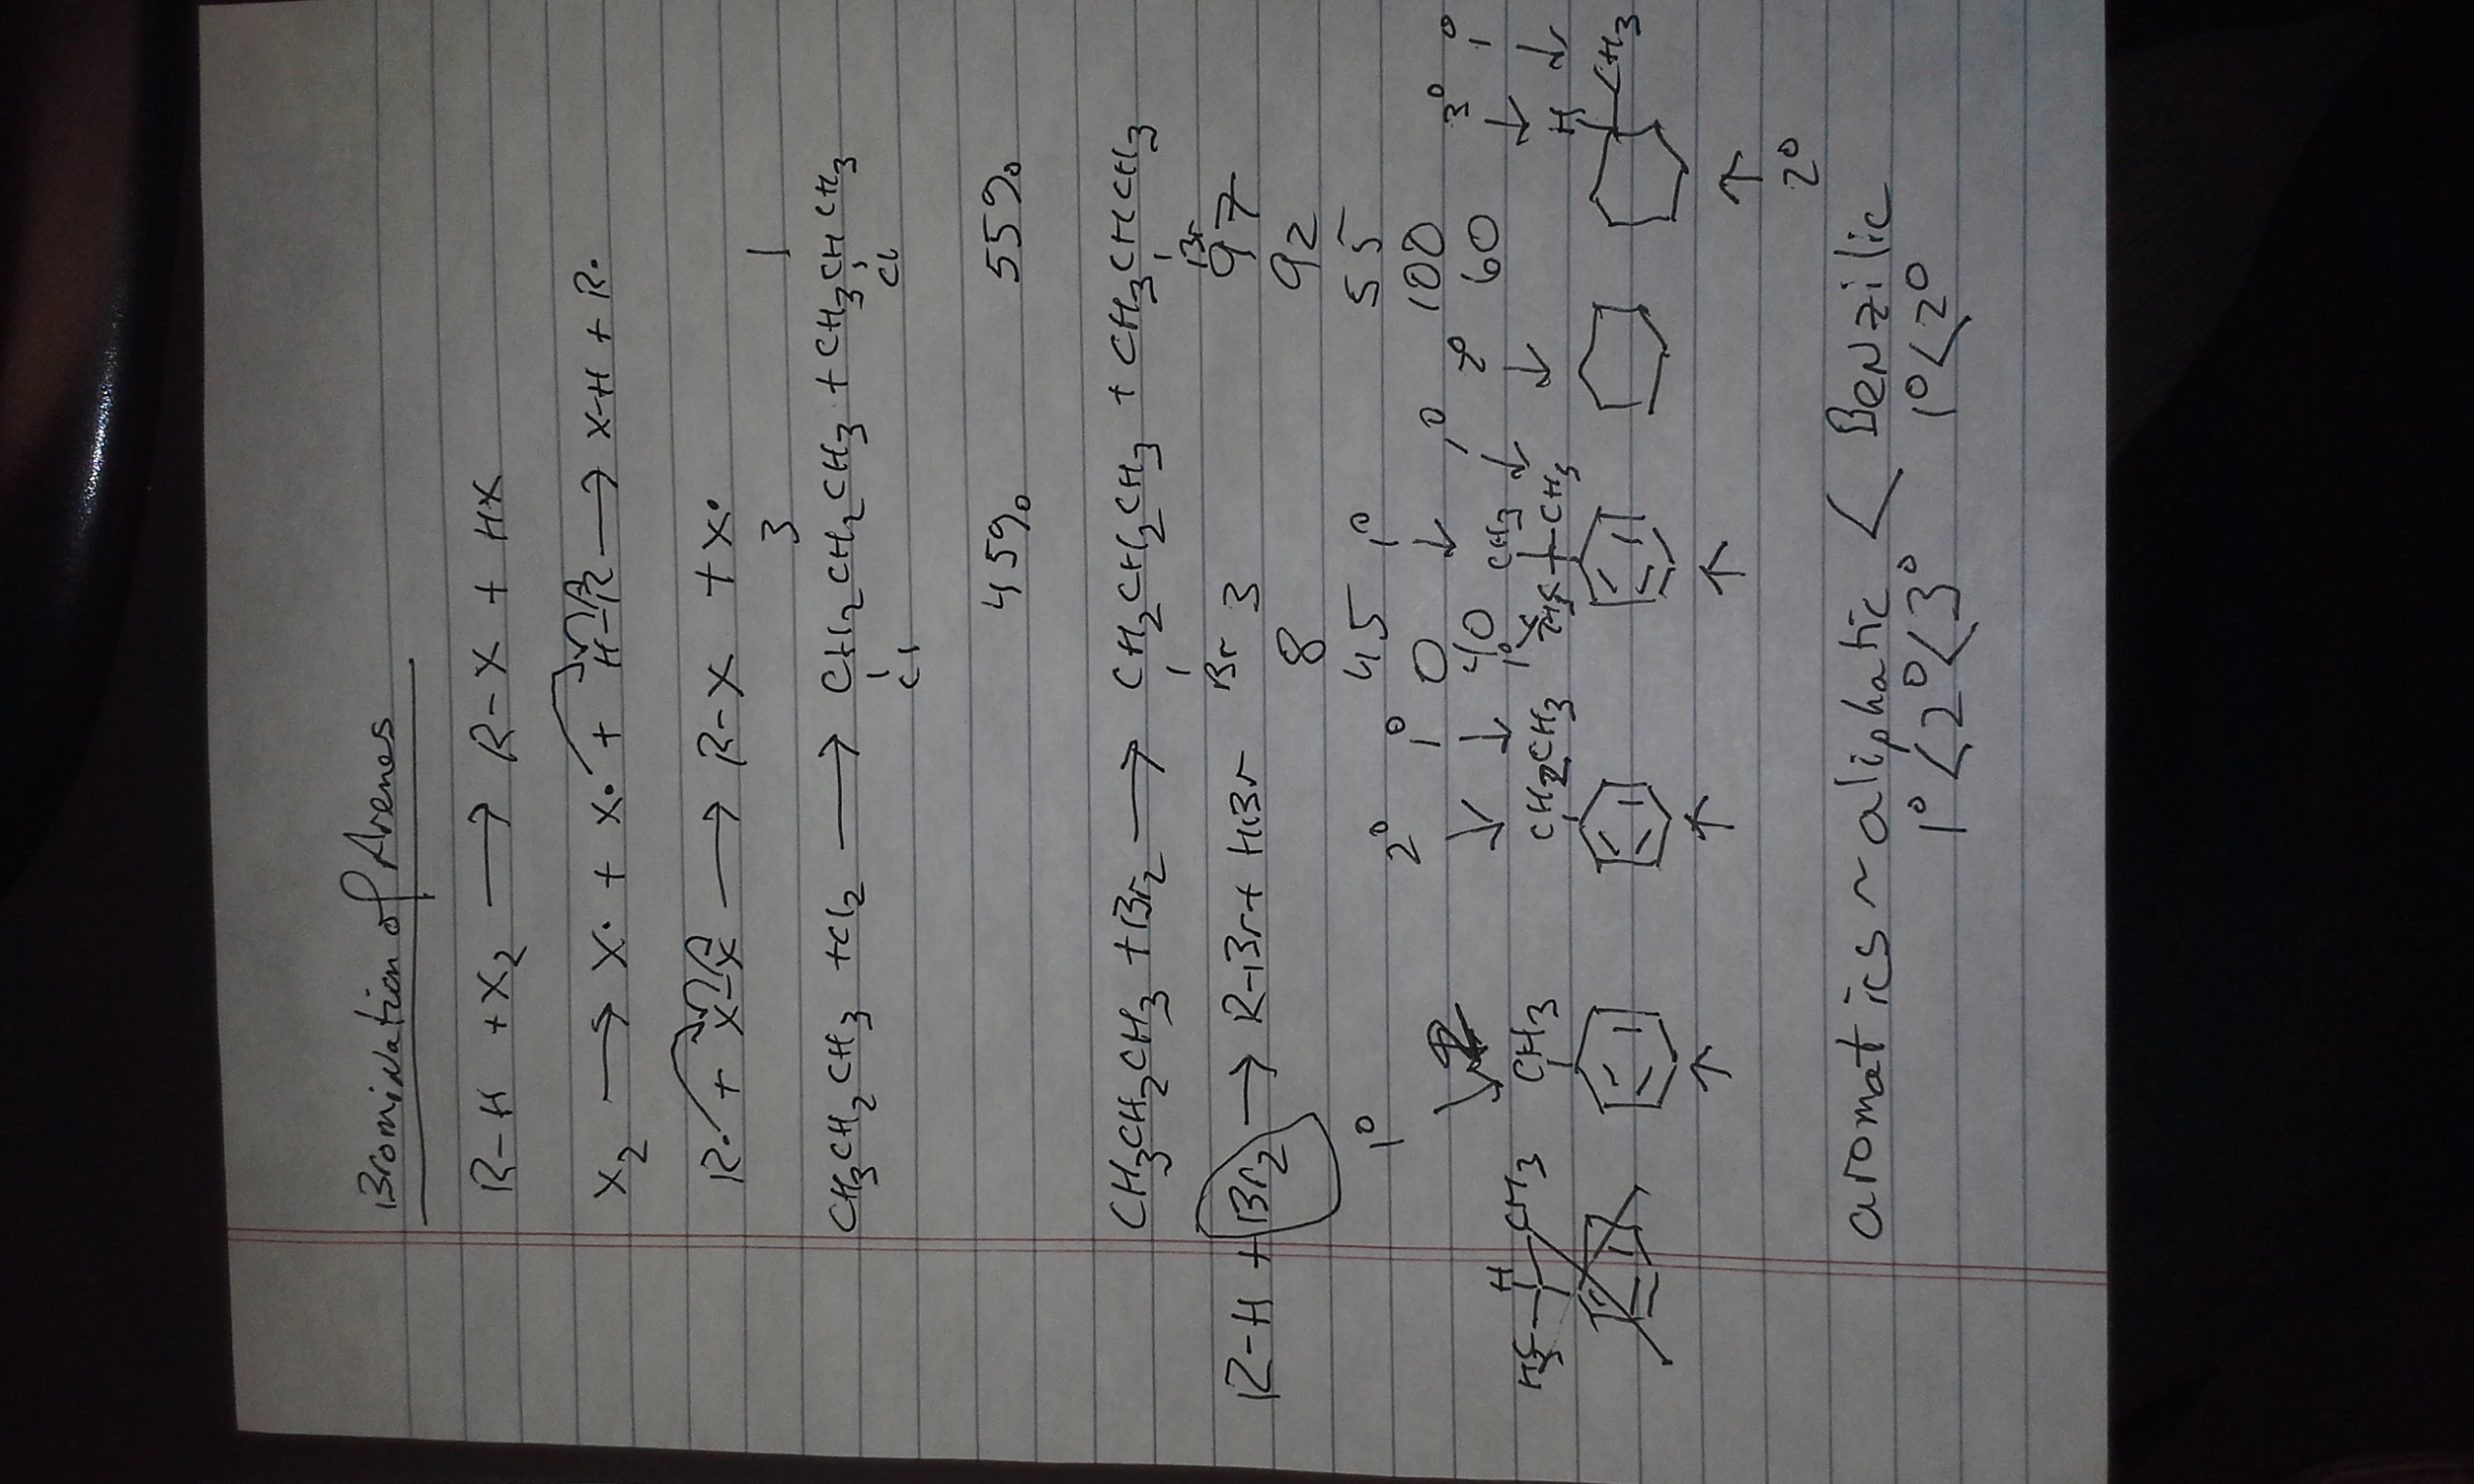 Bromination of Arenes
R-H + X₂ ⟶ R-X + HX
X₂ ⟶ X· + X· + H-R ⟶ X-H + R·
R· + X-X ⟶ R-X + X·
3 1
CH₃CH₂CH₃ + Cl₂ ⟶ CH₂CH₂CH₃ + CH₃CHCH₃
Cl Cl
45% 55%
CH₃CH₂CH₃ + Br₂ ⟶ CH₂CH₂CH₃ + CH₃CHCH₃
Br Br
R-H + Br₂ ⟶ R-Br + HBr 3 97
8 92
1° 45 55
2° 1° 1° 0 100
1° 2° 3° 1°
1° 40 60
H CH₃ CH₂CH₃ CH₃ H
H₃C CH₃ H₃C CH₃ CH₃
2°
aromatics ~ aliphatic < Benzilic
1° < 2° < 3° 1° < 2°